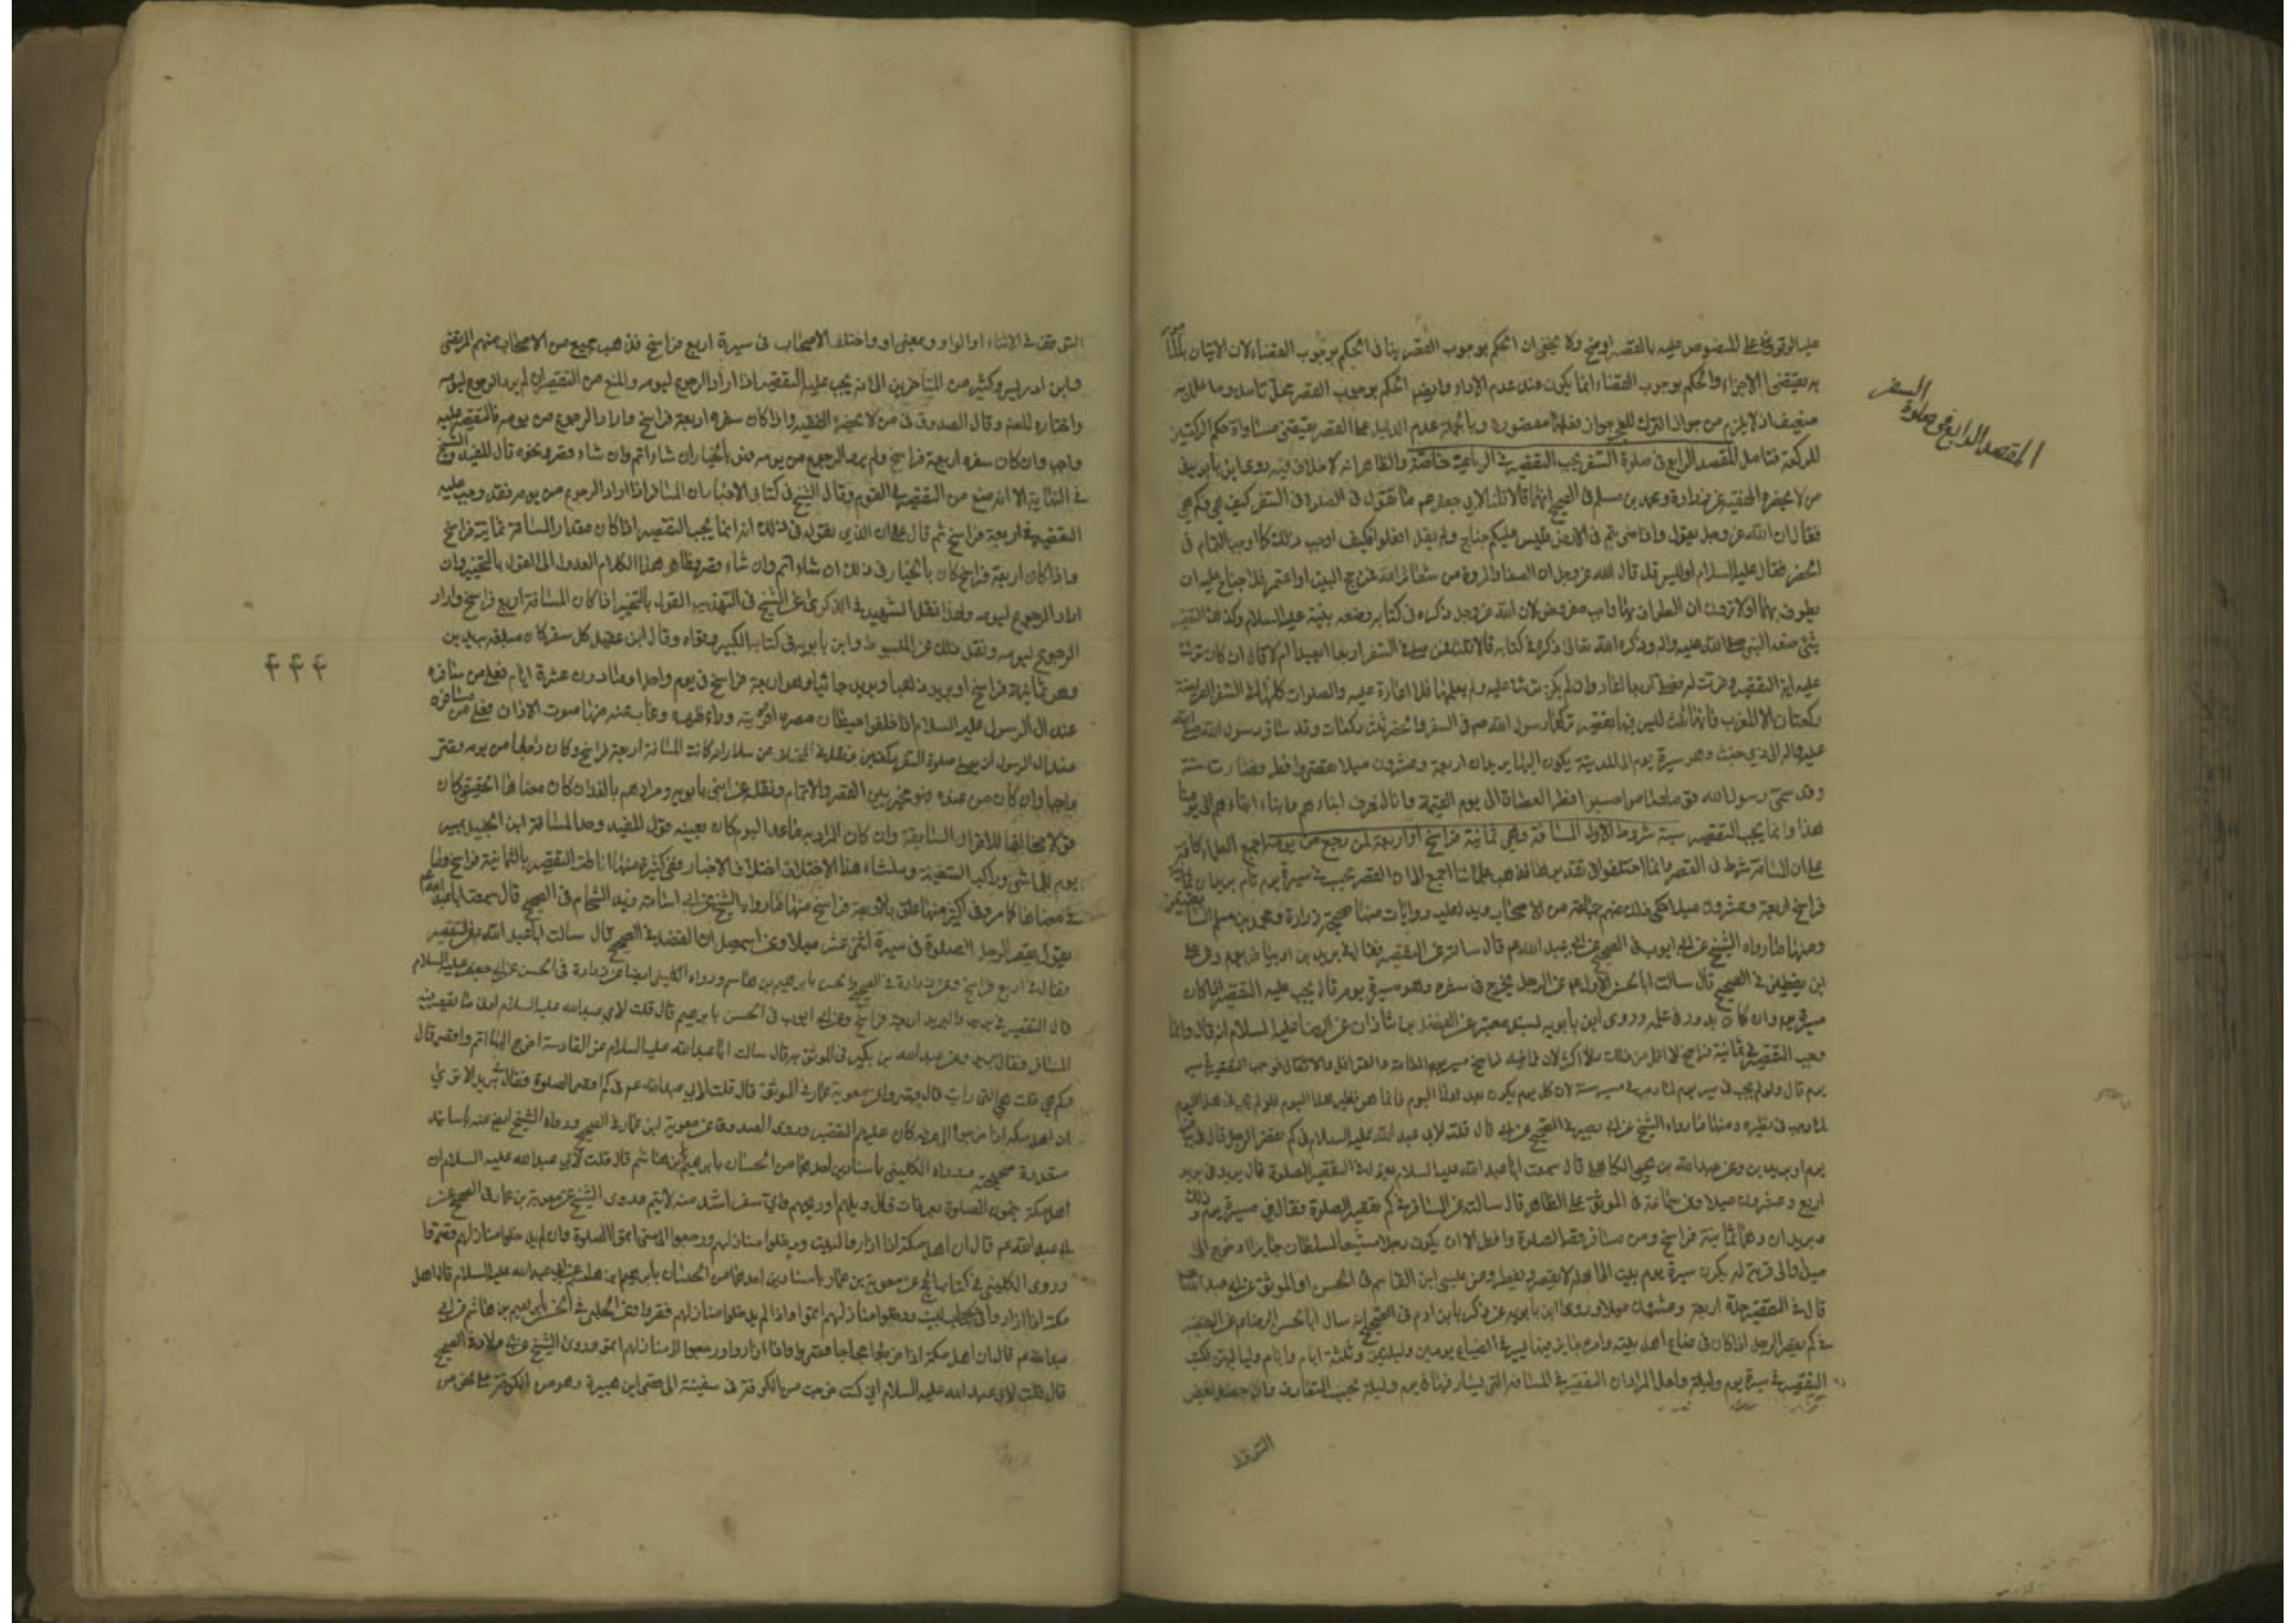 المقصد الرابع فى صلوة
السفر
عليه الوقوف على المنصوص عليه بالقصر اوضح ولا يخفى ان الحكم بوجوب القصر ينافى الحكم بوجوب القضاء لان الاتيان بالمأمور
به يقتضى الاجزاء والحكم بوجوب القضاء انما يكون عند عدم الاداء وايضا الحكم بوجوب القصر محل تأمل وما علل به
ضعيف اذ لا يلزم من جواز الترك للخوف جواز فعلها مقصورة وبالجملة عدم الدليل على القصر يقتضى مساواة حكم الركعتين
للركعة فتامل المقصد الرابع فى صلوة السفر يجب التقصير فى الرباعية خاصة والظاهر انه لا خلاف فيه روى ابن بابويه فى
من لا يحضره الفقيه عن زرارة ومحمد بن مسلم فى الصحيح انهما قالا قلنا لابى جعفر عم ما تقول فى الصلوة فى السفر كيف هى وكم هى
فقال ان الله عز وجل يقول واذا ضربتم فى الارض فليس عليكم جناح ولم يقل افعلوا فكيف اوجب ذلك كما اوجب التمام فى
الحضر فقال عليه السلام اوليس قد قال الله عز وجل ان الصفا والمروة من شعائر الله فمن حج البيت او اعتمر فلا جناح عليه ان
يطوف بهما اولا ترون ان الطواف بهما واجب مفروض لان الله عز وجل ذكره فى كتابه وصنعه نبيه عليه السلام وكذلك التقصير
شئ صنعه النبى صلى الله عليه واله وذكره الله تعالى ذكره فى كتابه قالا قلنا فمن صلى فى السفر اربعا ايعيد ام لا قال ان كان قرئت
عليه اية التقصير وفسرت له فصلى اربعا اعاد وان لم يكن قرئت عليه ولم يعلمها فلا اعادة عليه والصلوات كلها فى السفر الفريضة
ركعتان الا المغرب فانها ثلث ليس فيها تقصير تركها رسول الله صم فى السفر والحضر ثلث ركعات وقد سافر رسول الله صلى الله
عليه واله الى ذى خشب وهى مسيرة يوم الى المدينة يكون اليها بريدان اربعة وعشرون ميلا فقصر وافطر فصارت سنة
وقد سمى رسول الله قوما صاموا حين افطر العصاة الى يوم القيمة وانا لنعرف ابناءهم وابناء ابنائهم الى يومنا
هذا وانما يجب التقصير بستة شروط الاول المسافة وهى ثمانية فراسخ او اربعة لمن رجع من يومه اجمع العلماء كافة
على ان المسافة شرط فى القصر وانما اختلفوا فى تقديرها فذهب علمائنا اجمع الى ان القصر يجب فى مسيرة يوم تام بريدان ثمانية
فراسخ اربعة وعشرون ميلا حكى ذلك عنهم جماعة من الاصحاب ويدل عليه روايات منها صحيحة زرارة ومحمد بن مسلم السابقتين
ومنها ما رواه الشيخ عن ابى ايوب فى الصحيح عن ابى عبد الله عم قال سالته عن التقصير فقال فى بريدين او بياض يوم وعن على
ابن يقطين فى الصحيح قال سالت ابا الحسن الاول عم عن الرجل يخرج فى سفره وهو مسيرة يوم قال يجب عليه التقصير اذا كان
مسيرة يوم وان كان يدور فى عمله وروى ابن بابويه بسند معتبر عن الفضل بن شاذان عن الرضا عليه السلام انه قال وانما
وجب التقصير فى ثمانية فراسخ لا اقل من ذلك ولا اكثر لان ثمانية فراسخ مسير يوم للعامة والقوافل والاثقال فوجب التقصير فى مسير
يوم قال ولو لم يجب فى مسير يوم لما وجب فى مسير سنة لان كل يوم يكون بعد هذا اليوم فانما هو نظير هذا اليوم فلو لم يجب فى هذا اليوم
لما وجب فى نظيره ومنها ما رواه الشيخ عن ابى بصير فى الصحيح قال قلت لابى عبد الله عليه السلام فى كم يقصر الرجل قال فى بياض
يوم او بريدين وعن عبد الله بن يحيى الكاهلى قال سمعت ابا عبد الله عليه السلام يقول فى التقصير الصلوة قال بريد فى بريد
اربع وعشرون ميلا وعن سماعة فى الموثق على الظاهر قال سالته عن المسافر فى كم يقصر الصلوة فقال فى مسيرة يوم وذلك
بريدان وهما ثمانية فراسخ ومن سافر قصر الصلوة وافطر الا ان يكون رجلا مشيعا لسلطان جاير او خرج الى
صيد او الى قرية له يكون مسيرة يوم يبيت الى اهله لا يقصر ولا يفطر وعن عيص ابن القاسم فى الحسن او الموثق عن ابى عبد الله عم
قال فى التقصير حده اربعة وعشرون ميلا وروى ابن بابويه عن زكريا بن ادم فى الصحيح انه سال ابا الحسن الرضا عم عن التقصير
فى كم يقصر الرجل اذا كان فى ضياع اهل بيته وامره جايز فيها يسير فى الضياع يومين وليلتين وثلثة ايام ولياليهن فكتب
التقصير فى مسيرة يوم وليلة ولعل المراد ان التقصير فى المسافة التى يسار فيها يوم وليلة بحسب التعارف وان حصل بعض
التوقف
التوقف فى الاثناء او الواو بمعنى او واختلف الاصحاب فى مسيرة اربع فراسخ فذهب جمع من الاصحاب منهم المرتضى
وابن ادريس وكثير من المتاخرين الى انه يجب عليه التقصير اذا اراد الرجوع ليومه والمنع من التقصير ان لم يرد الرجوع ليومه
واختاره المصنف وقال الصدوق فى من لا يحضره الفقيه واذا كان سفره اربعة فراسخ واراد الرجوع من يومه فالتقصير عليه
واجب وان كان سفره اربعة فراسخ ولم يرد الرجوع من يومه فهو بالخيار ان شاء اتم وان شاء قصر ونحوه قال المفيد والشيخ
فى النهاية الا انه منع من التقصير فى الصوم وقال الشيخ فى كتابى الاخبار ان المسافر اذا اراد الرجوع من يومه فقد وجب عليه
التقصير فى اربعة فراسخ ثم قال على ان الذى نقوله فى ذلك انه انما يجب التقصير اذا كان مقدار المسافة ثمانية فراسخ
واذا كان اربعة فراسخ كان بالخيار فى ذلك ان شاء اتم وان شاء قصر وظاهر هذا الكلام العدول الى القول بالتخيير وان
اراد الرجوع ليومه ولهذا نقل الشهيد فى الذكرى عن الشيخ فى التهذيب القول بالتخيير اذا كان المسافة اربع فراسخ واراد
الرجوع ليومه ونقل ذلك عن المبسوط وابن بابويه فى كتابه الكبير وقواه وقال ابن عقيل كل سفر كان مبلغه بريدين
وهو ثمانية فراسخ او بريد ذاهبا وبريد جائيا وهو اربعة فراسخ فى يوم واحد او ما دون عشرة ايام فعلى من سافره
عند ال الرسول عليه السلام اذا خلف حيطان مصره او قريته وراء ظهره وغاب عنه منها صوت الاذان
ان يصلى صلوة السفر ركعتين ونقل فى المختلف عن سلار انه كانت المسافة اربعة فراسخ وكان راجعا من يومه قصر
واجبا وان كان من غده فهو مخير بين القصر والاتمام ونقله عن ابنى بابويه ومرادهم بالغد ان كان معناها الحقيقى كان
قولا مخالفا للاقوال السابقة وان كان المراد به ما عدا اليوم كان بعينه قول المفيد وحد المسافة ابن الجنيد بمسير
يوم للماشى وراكب السفينة ومنشاء هذا الاختلاف اختلاف الاخبار ففى كثير منها اناط التقصير بالثمانية فراسخ وما
فى معناها كما مر وفى اكثر منها علق بالاربعة فراسخ منها ما رواه الشيخ عن ابى اسامة زيد الشحام فى الصحيح قال سمعت ابا عبد الله عم
يقول يقصر الرجل الصلوة فى مسيرة اثنى عشر ميلا وعن اسمعيل ابن الفضل فى الصحيح قال سالت ابا عبد الله عن التقصير
فقال فى اربع فراسخ وعن زرارة فى الصحيح والحسن بابرهيم بن هاشم ورواه الكلينى ايضا عن زرارة فى الحسن عن ابى جعفر عليه السلام
قال التقصير فى بريد والبريد اربعة فراسخ وعن ابى ايوب فى الحسن بابرهيم قال قلت لابى عبد الله عليه السلام ادنى ما يقصر فيه
المسافر فقال بريد وعن عبد الله بن بكير فى الموثق به قال سالت ابا عبد الله عليه السلام عن القادسية اخرج اليها اتم او اقصر قال
وكم هى قلت هى التى رايت قال قصر وعن معوية بن عمار فى الموثق قال قلت لابى عبد الله عم فى كم اقصر الصلوة فقال فى بريد الا ترى
ان اهل مكة اذا خرجوا الى عرفة كان عليهم التقصير وروى الصدوق عن معوية ابن عمار فى الصحيح ورواه الشيخ ايضا عنه باسانيد
متعددة صحيحة ورواه الكلينى باسنادين احدهما من الحسان بابرهيم بن هاشم قال قلت لابى عبد الله عليه السلام ان
اهل مكة يتمون الصلوة بعرفات قال ويلهم او ويحهم واى سفر اشد منه لا يتم وروى الشيخ عن معوية بن عمار فى الصحيح عن
ابى عبد الله عم قال ان اهل مكة اذا زاروا البيت ودخلوا منازلهم ورجعوا الى منى اتموا الصلوة وان لم يدخلوا منازلهم قصروا
وروى الكلينى فى كتاب الحج عن معوية بن عمار باسنادين احدهما من الحسان بابرهيم ابن هاشم عن ابى عبد الله عليه السلام قال اهل
مكة اذا زاروا البيت ودخلوا منازلهم اتموا واذا لم يدخلوا منازلهم قصروا وعن الحلبى فى الحسن بابرهيم بن هاشم عن ابى
عبد الله عم قال ان اهل مكة اذا خرجوا حجاجا قصروا واذا زاروا ورجعوا الى منازلهم اتموا وروى الشيخ عن ابى ولاد فى الصحيح
قال قلت لابى عبد الله عليه السلام انى كنت خرجت من الكوفة فى سفينة الى قصر ابن هبيرة وهو من الكوفة على نحو من